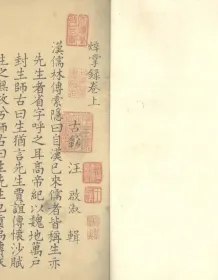 焠掌錄卷上
古歙 汪 啟淑 輯
漢儒林傳索隱曰自漢已來儒者皆稱生亦
先生者省字呼之耳高帝紀以魏地萬戶
封生師古曰生猶言先生賈誼傳懷沙賦
生之無故兮師古曰生先生也